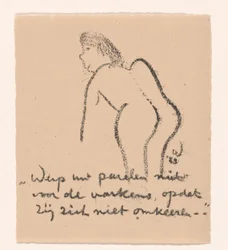 „Werp uw parelen niet
voor de varkens, opdat
zij zich niet omkeeren--"